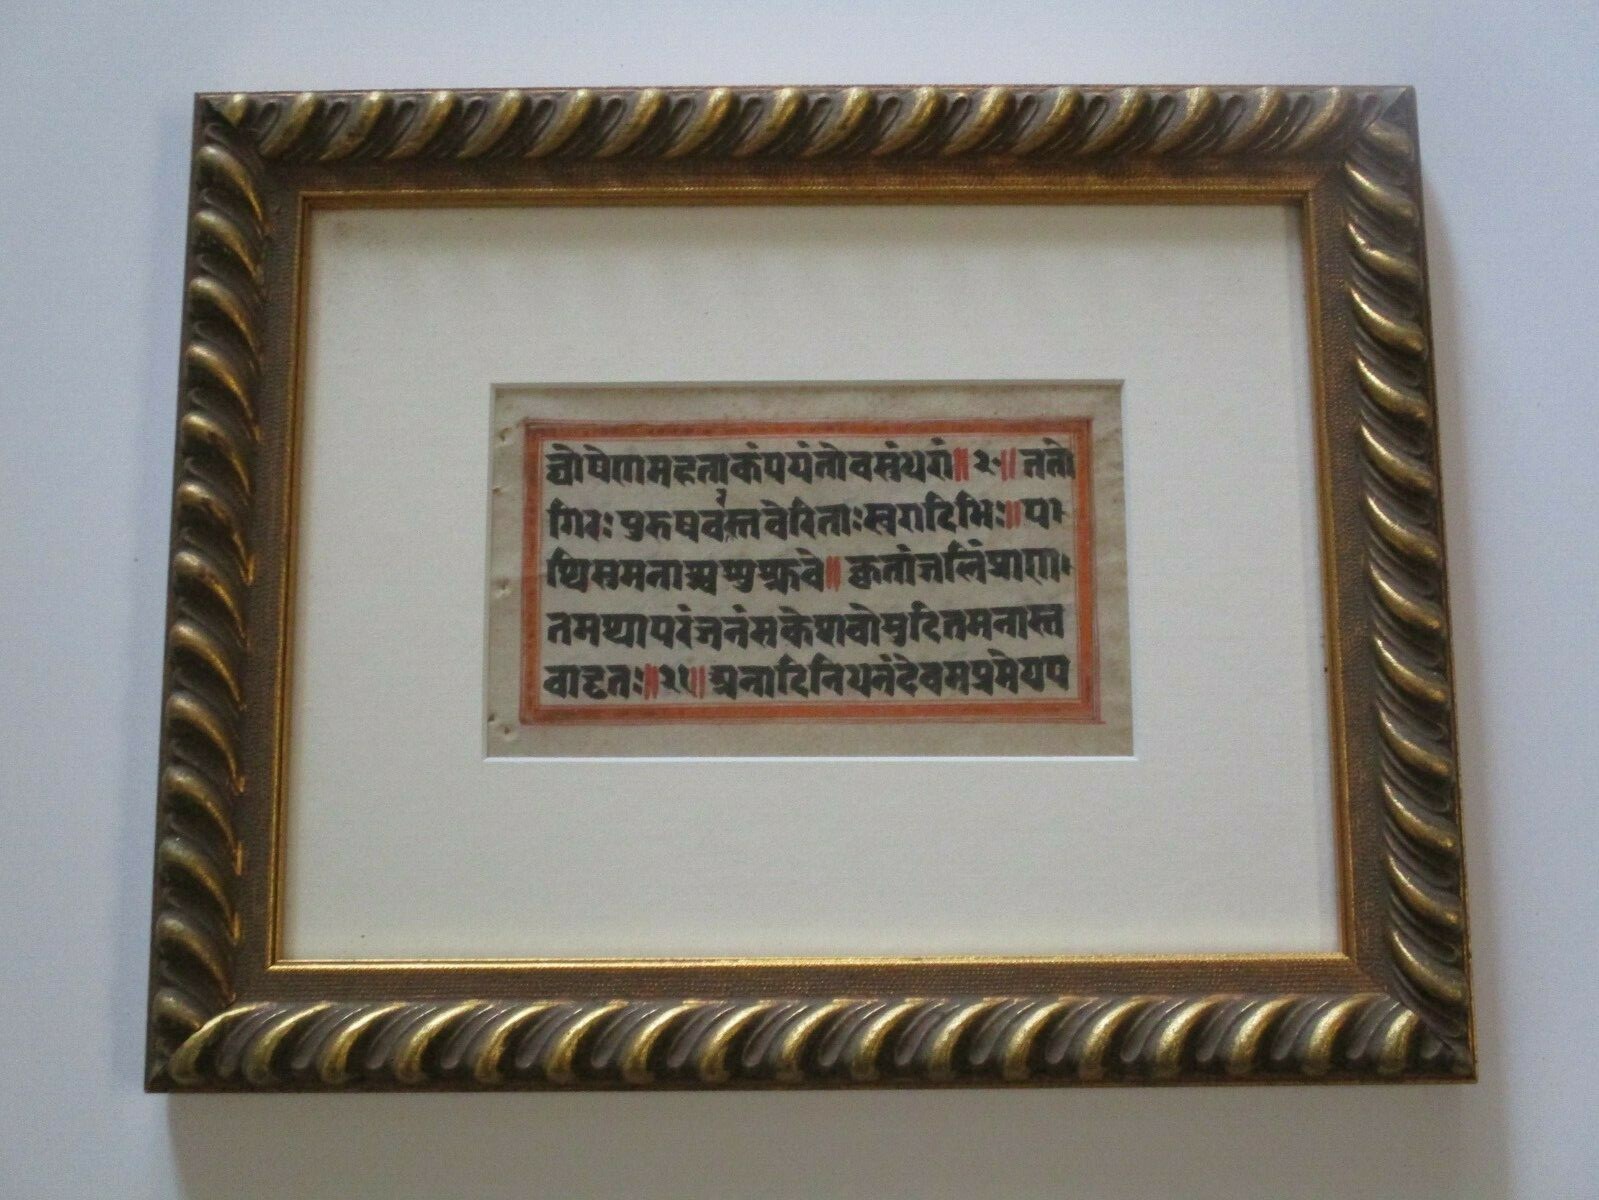 द्घोषेणमहताकंपयंतोवसुंधरां॥२०॥ततो
गिरः पुरुषवरस्तवेरिताःस्वरादिभिः॥पा
र्थिसुमनाअथशुश्रुवे॥कृतांजलिंप्राणा
तमथापरंजनंसकेशवोमुदितमनास्त
वादृतः॥२१॥अनादिनिधनंदेवमप्रमेयप